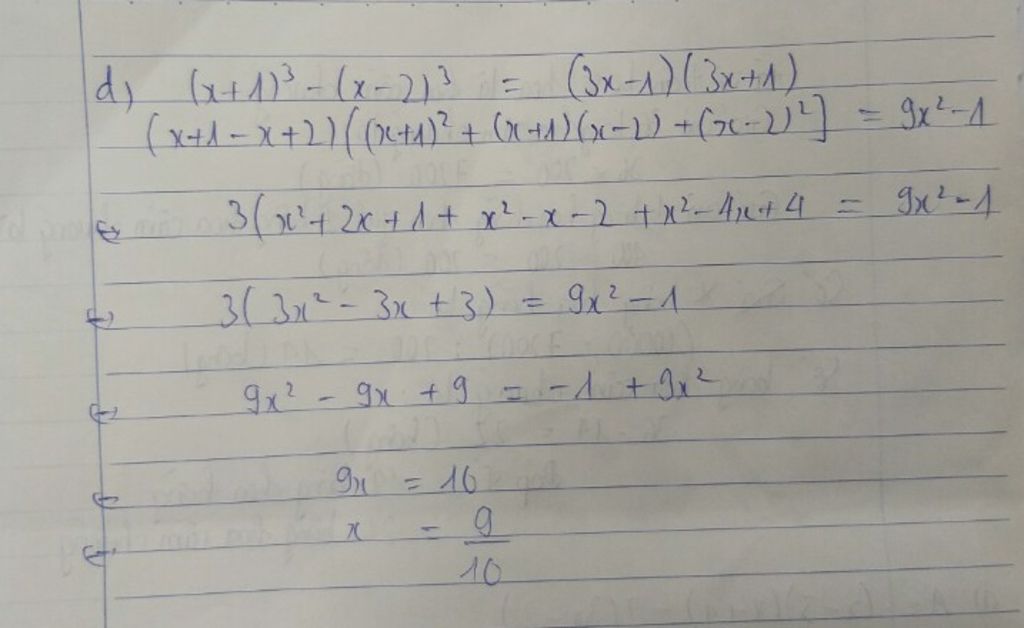 d) (x+1)³ - (x-2)³ = (3x-1)(3x+1)
(x+1-x+2)((x+1)² + (x+1)(x-2) + (x-2)²] = 9x²-1
⇔ 3(x²+2x+1+ x²-x-2 +x²-4x+4 = 9x²-1
⇔ 3(3x² - 3x + 3) = 9x² - 1
⇔ 9x² - 9x + 9 = -1 + 9x²
⇔ 9x = 10
⇔ x = 9/10